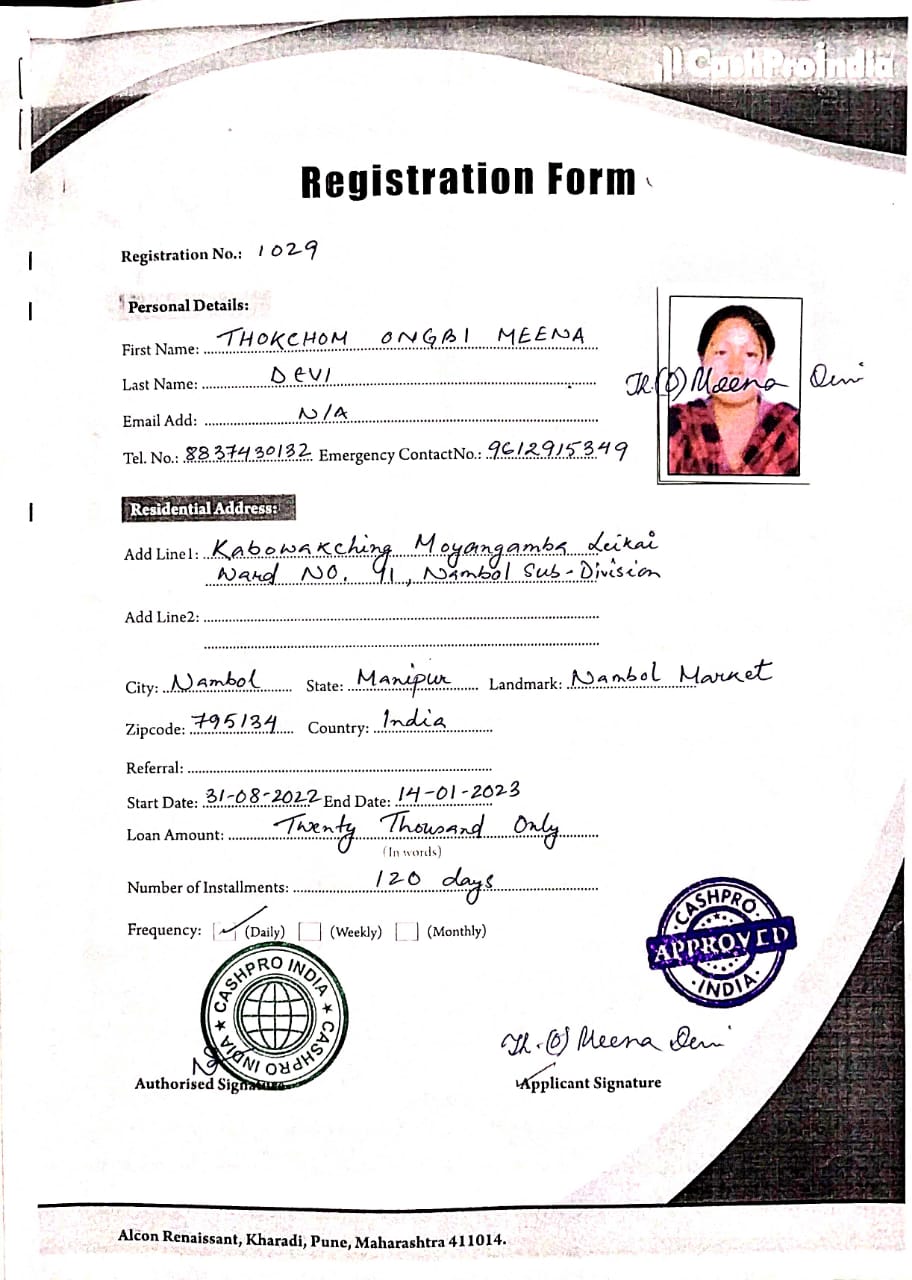 CashProIndia
Registration Form
Registration No.: 1029
Personal Details:
First Name: THOKCHOM ONGBI MEENA
Last Name: DEVI
Email Add: N/A
Tel. No.: 8837430132 Emergency ContactNo.: 9612915349
Th.(O) Meena Devi
Residential Address:
Add Line1: Kabowakching Moyangamba Leikai
Ward NO. 91, Nambol Sub-Division
Add Line2:
City: Nambol State: Manipur Landmark: Nambol Market
Zipcode: 795134 Country: India
Referral:
Start Date: 31-08-2022 End Date: 14-01-2023
Loan Amount: Twenty Thousand Only
(In words)
Number of Installments: 120 days
Frequency: (Daily) (Weekly) (Monthly)
CASHPRO
APPROVED
INDIA
CASHPRO INDIA ★ CASHPRO INDIA ★
Th.(O) Meena Devi
Authorised Signature Applicant Signature
Alcon Renaissant, Kharadi, Pune, Maharashtra 411014.